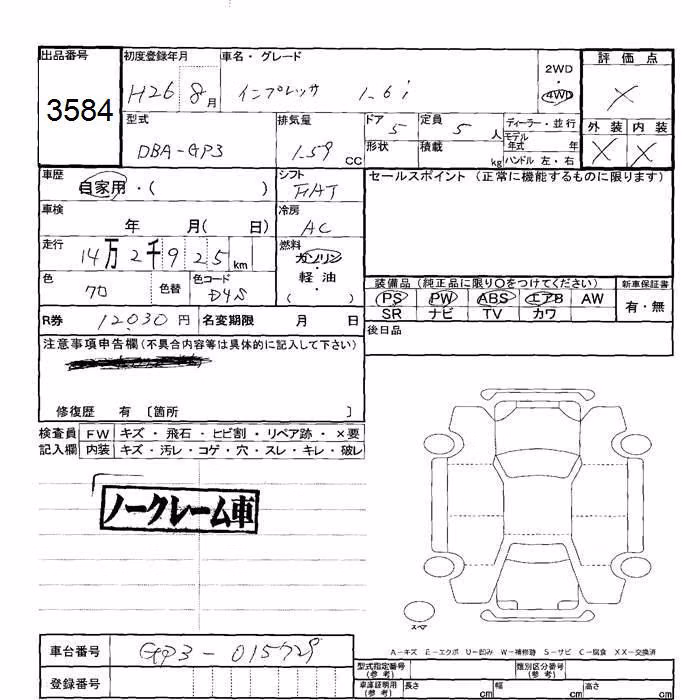 出品番号 初度登録年月 車名・グレード 評価点
3584 H26 8月 インプレッサ 1.6i 2WD・4WD X
型式 排気量 ドア 定員 ディーラー・並行 外装 内装
DBA-GP3 1.59 CC 5 5 人 モデル年式 年 X X
形状 積載 kg ハンドル 左・右
車歴 自家用・( ) シフト FAT セールスポイント (正常に機能するものに限ります)
車検 年 月( 日) 冷房 AC
走行 14万2千925km 燃料 ガソリン・軽油 ( )
色 色替 色コード D4S
装備品 (純正品に限り○をつけてください) 新車保証書
PS PW ABS エアB AW 有・無
SR ナビ TV カワ
R券 12030円 名変期限 月 日 後日品
注意事項申告欄 (不具合内容等は具体的に記入して下さい)
修復歴 有 〔箇所 〕
検査員 FW キズ・飛石・ヒビ割・リペア跡・×要
記入欄 内装 キズ・汚レ・コゲ・穴・スレ・キレ・破レ
ノークレーム車
スペア
A-キズ E-エクボ U-凹み W-補修跡 S-サビ C-腐食 XX-交換済
車台番号 GP3-015729
登録番号
型式指定番号(参考) 類別区分番号(参考)
車庫証明用(参考) 長さ cm 幅 cm 高さ cm